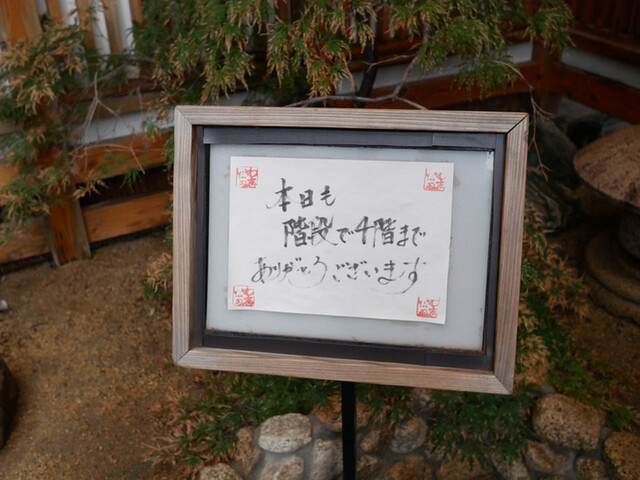 本日も
階段で4階まで
ありがとうございます